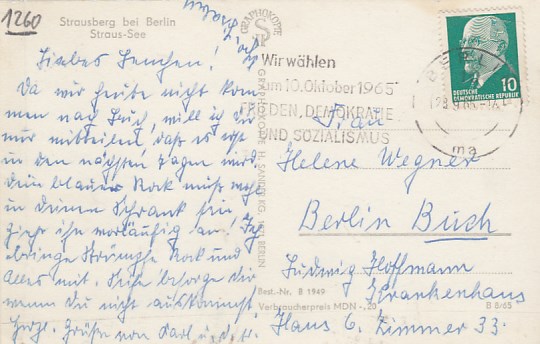 1260
Strausberg bei Berlin
Straus-See
Liebes Lenchen!
Da wir heute nicht kom-
men nach Buch, will ich Dir
nur mitteilen, daß es erst
in den nächsten Tagen wird.
Dein blauer Rock muß noch
in Deinem Schrank sein,
ziehe ihn vorläufig an! Ich
bringe Strümpfe Rock und
Alles mit. Seife besorge Dir
wenn Du nicht auskommst
Herzl. Grüße von Karl u.
GRAPHOKOPIE
GRAPHOKOPIE H. SANDER KG, BERLIN
Wir wählen
am 10. Oktober 1965
FRIEDEN, DEMOKRATIE
UND SOZIALISMUS
BERLIN
DEUTSCHE
DEMOKRATISCHE REPUBLIK
10
Frau
Helene Wegner
Berlin Buch
Ludwig Hoffmann
Krankenhaus
Haus 6. Zimmer 33.
Best.-Nr. B 1949
Verbraucherpreis MDN -,20
B 8/65